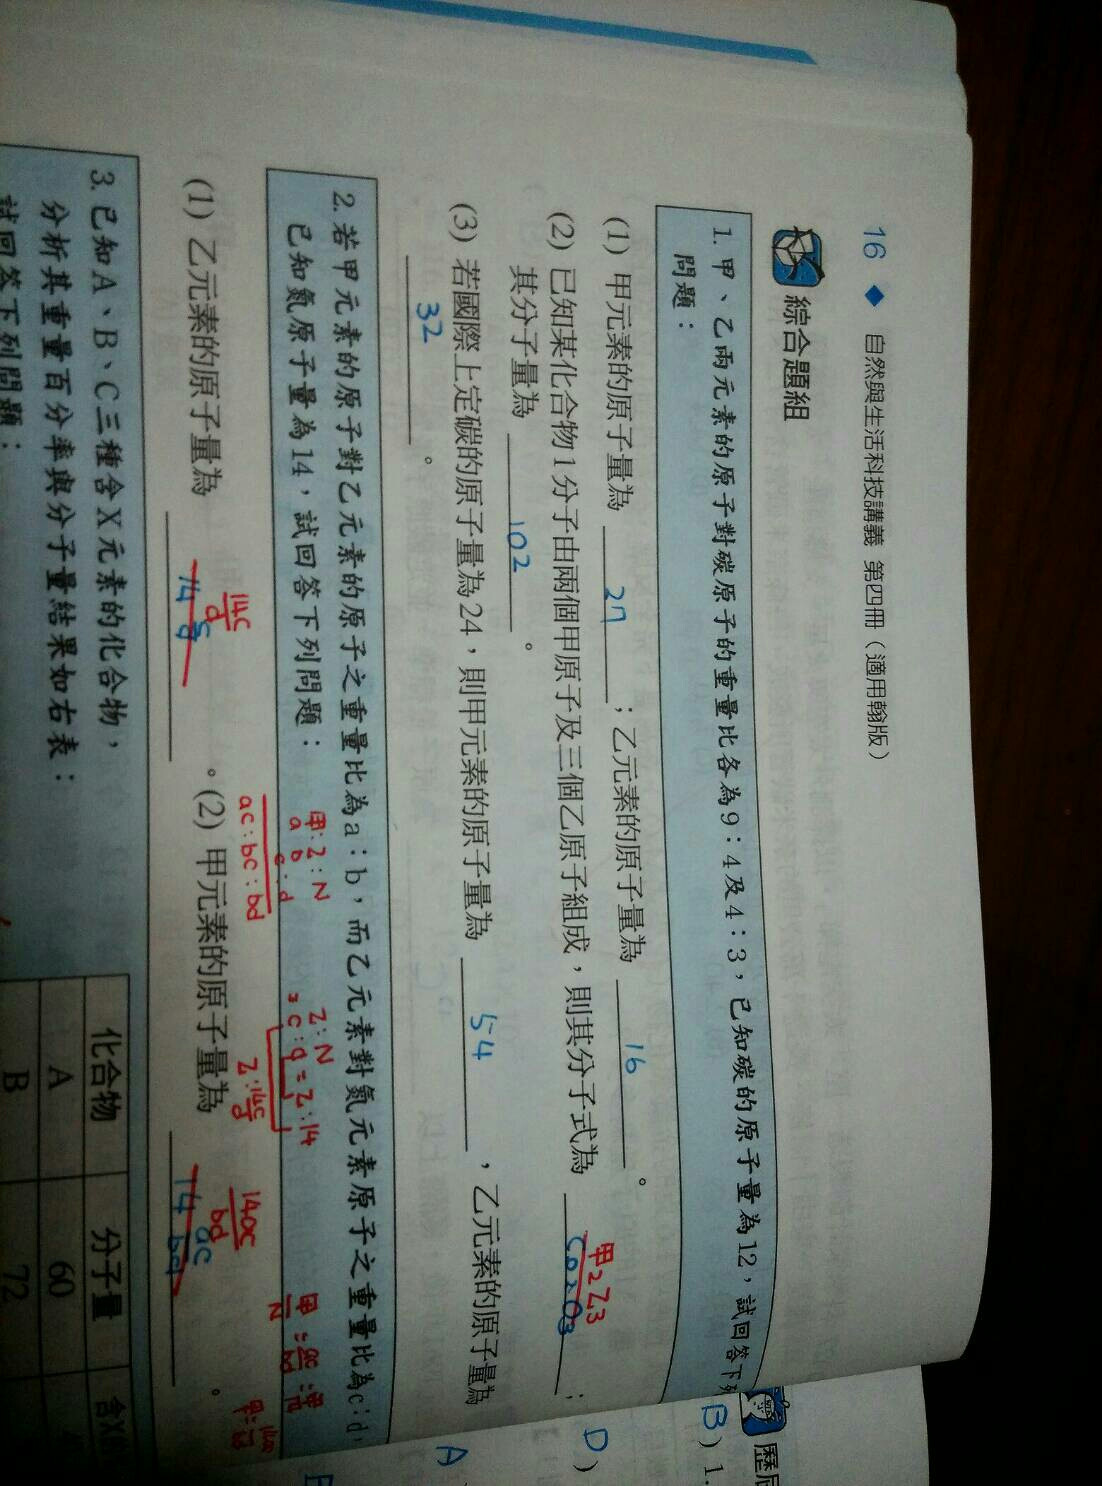 16 ◆ 自然與生活科技講義 第四冊（適用翰版）
綜合題組
1. 甲、乙兩元素的原子對碳原子的重量比各為9：4及4：3，已知碳的原子量為12，試回答下列
問題：
(1) 甲元素的原子量為 27 ；乙元素的原子量為 16 。
(2) 已知某化合物1分子由兩個甲原子及三個乙原子組成，則其分子式為 甲2乙3 ；
其分子量為 102 。
(3) 若國際上定碳的原子量為24，則甲元素的原子量為 54 ，乙元素的原子量為
32 。
2. 若甲元素的原子對乙元素的原子之重量比為a：b，而乙元素對氮元素原子之重量比為c：d，
已知氮原子量為14，試回答下列問題：
甲:乙:N
a b
c:d
ac:bc:bd
乙:N
=c:d=乙:14
乙:14c/d
甲/N=ac/bd=甲/14
(1) 乙元素的原子量為 14c/d 。(2) 甲元素的原子量為 14ac/bd 。
3. 已知A、B、C三種含X元素的化合物，
分析其重量百分率與分子量結果如右表：
試回答下列問題：
化合物 分子量 含X
A 60
B 72
B ) 1.
D )
A